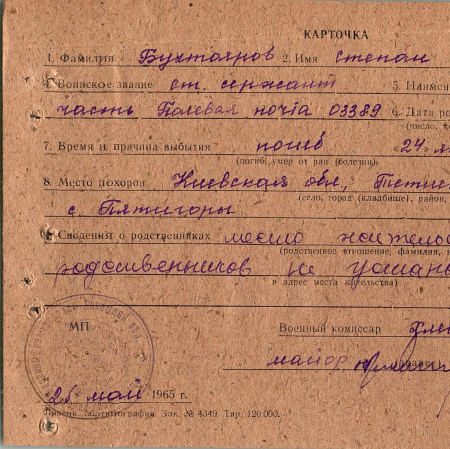 КАРТОЧКА
1. Фамилия Бухтояров 2. Имя Степан
4. Воинское звание ст. сержант 5. Наимен
часть Полевая почта 03389 6. Дата ро
(число,
7. Время и причина выбытия погиб «24» я
(погиб, умер от ран (болезни)
8. Место похорон Киевская обл,
(село, город (кладбище), район,
с. Пятигоры
9. Сведения о родственниках место жительс
(родственное отношение, фамилия,
родственников не устано
в адрес места жительства)
МП Военный комиссар
майор
«26» май 1965 г.
Липецк. Полиграфия Зак. № 4349. Тир. 120 000.